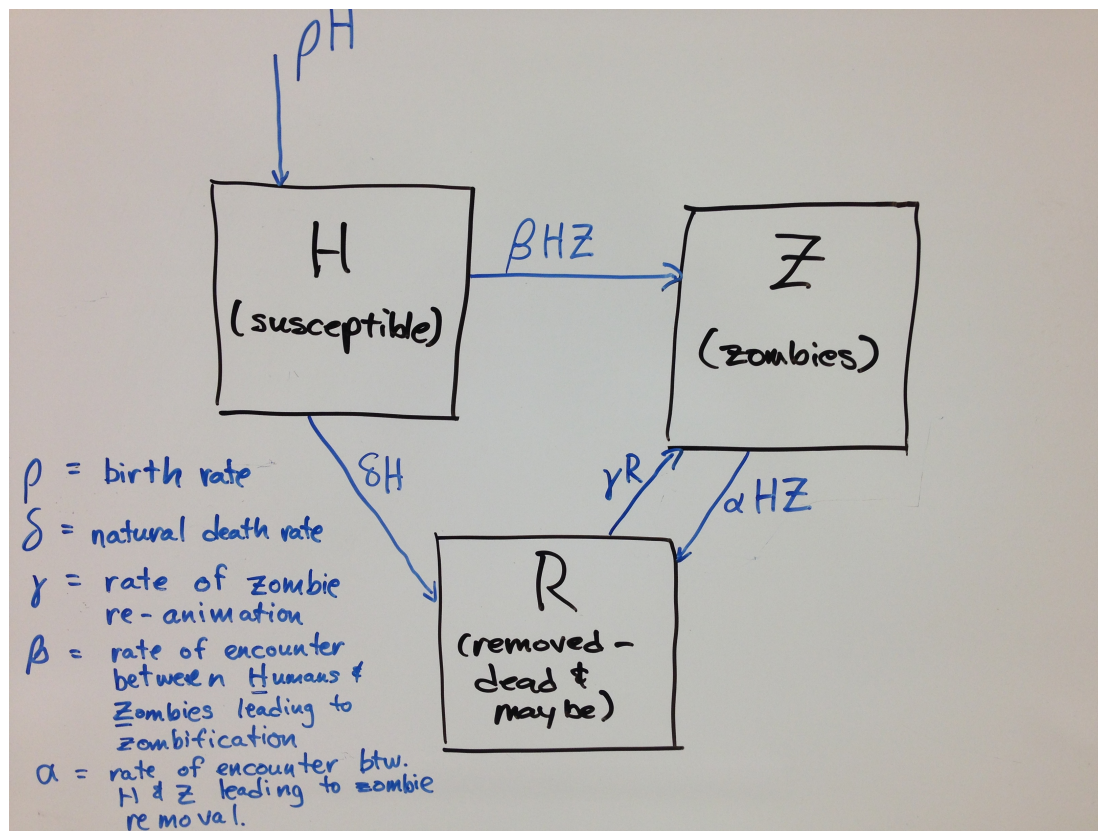 ρH
H
(susceptible)
βHZ
Z
(zombies)
δH
γR
αHZ
R
(removed -
dead &
maybe)
ρ = birth rate
δ = natural death rate
γ = rate of zombie
re-animation
β = rate of encounter
between Humans &
Zombies leading to
zombification
α = rate of encounter btw.
H & Z leading to zombie
removal.